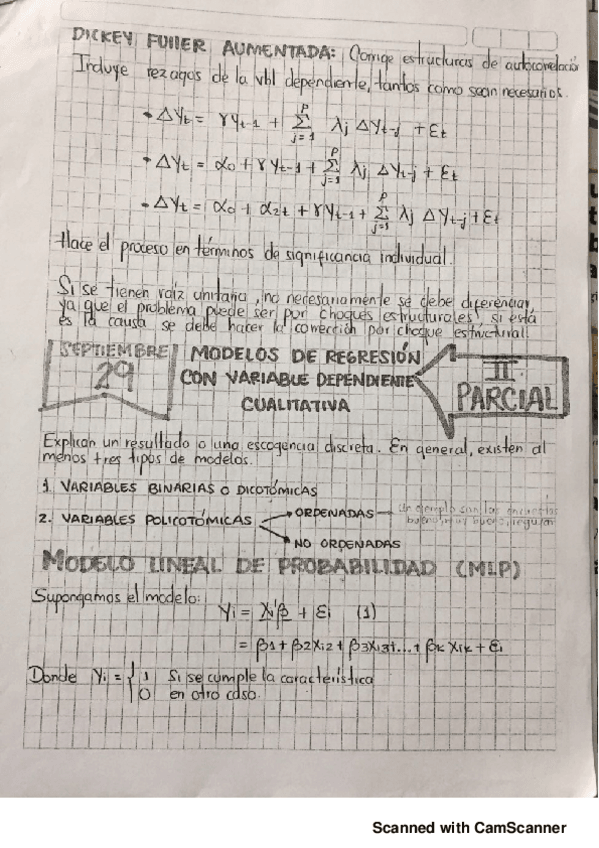 DICKEY FULLER AUMENTADA: Corrige estructuras de autocorrelación
Incluye rezagos de la vbl dependiente, tantos como sean necesarios.
• ΔYt = γYt-1 + Σ(j=1, p) λj ΔYt-j + Et
• ΔYt = α0 + γYt-1 + Σ(j=1, p) λj ΔYt-j + Et
• ΔYt = α0 + α2t + γYt-1 + Σ(j=1, p) λj ΔYt-j + Et
Hace el proceso en términos de significancia individual.
Si se tienen raíz unitaria, no necesariamente se debe diferenciar,
ya que el problema puede ser por choques estructurales, si está
es la causa se debe hacer la corrección por choque estructural.
SEPTIEMBRE
29
MODELOS DE REGRESIÓN
CON VARIABLE DEPENDIENTE
CUALITATIVA
II
PARCIAL
Explican un resultado o una escogencia discreta. En general, existen al
menos tres tipos de modelos.
1. VARIABLES BINARIAS O DICOTÓMICAS
2. VARIABLES POLICOTÓMICAS
ORDENADAS
un ejemplo son las encuestas
bueno, muy bueno, regular
NO ORDENADAS
MODELO LINEAL DE PROBABILIDAD (MLP)
Supongamos el modelo:
Yi = Xi'β + Ei (1)
= β1 + β2Xi2 + β3Xi3+...+ βk Xik + Ei
Donde Yi = { 1 Si se cumple la característica
0 en otro caso.
Scanned with CamScanner